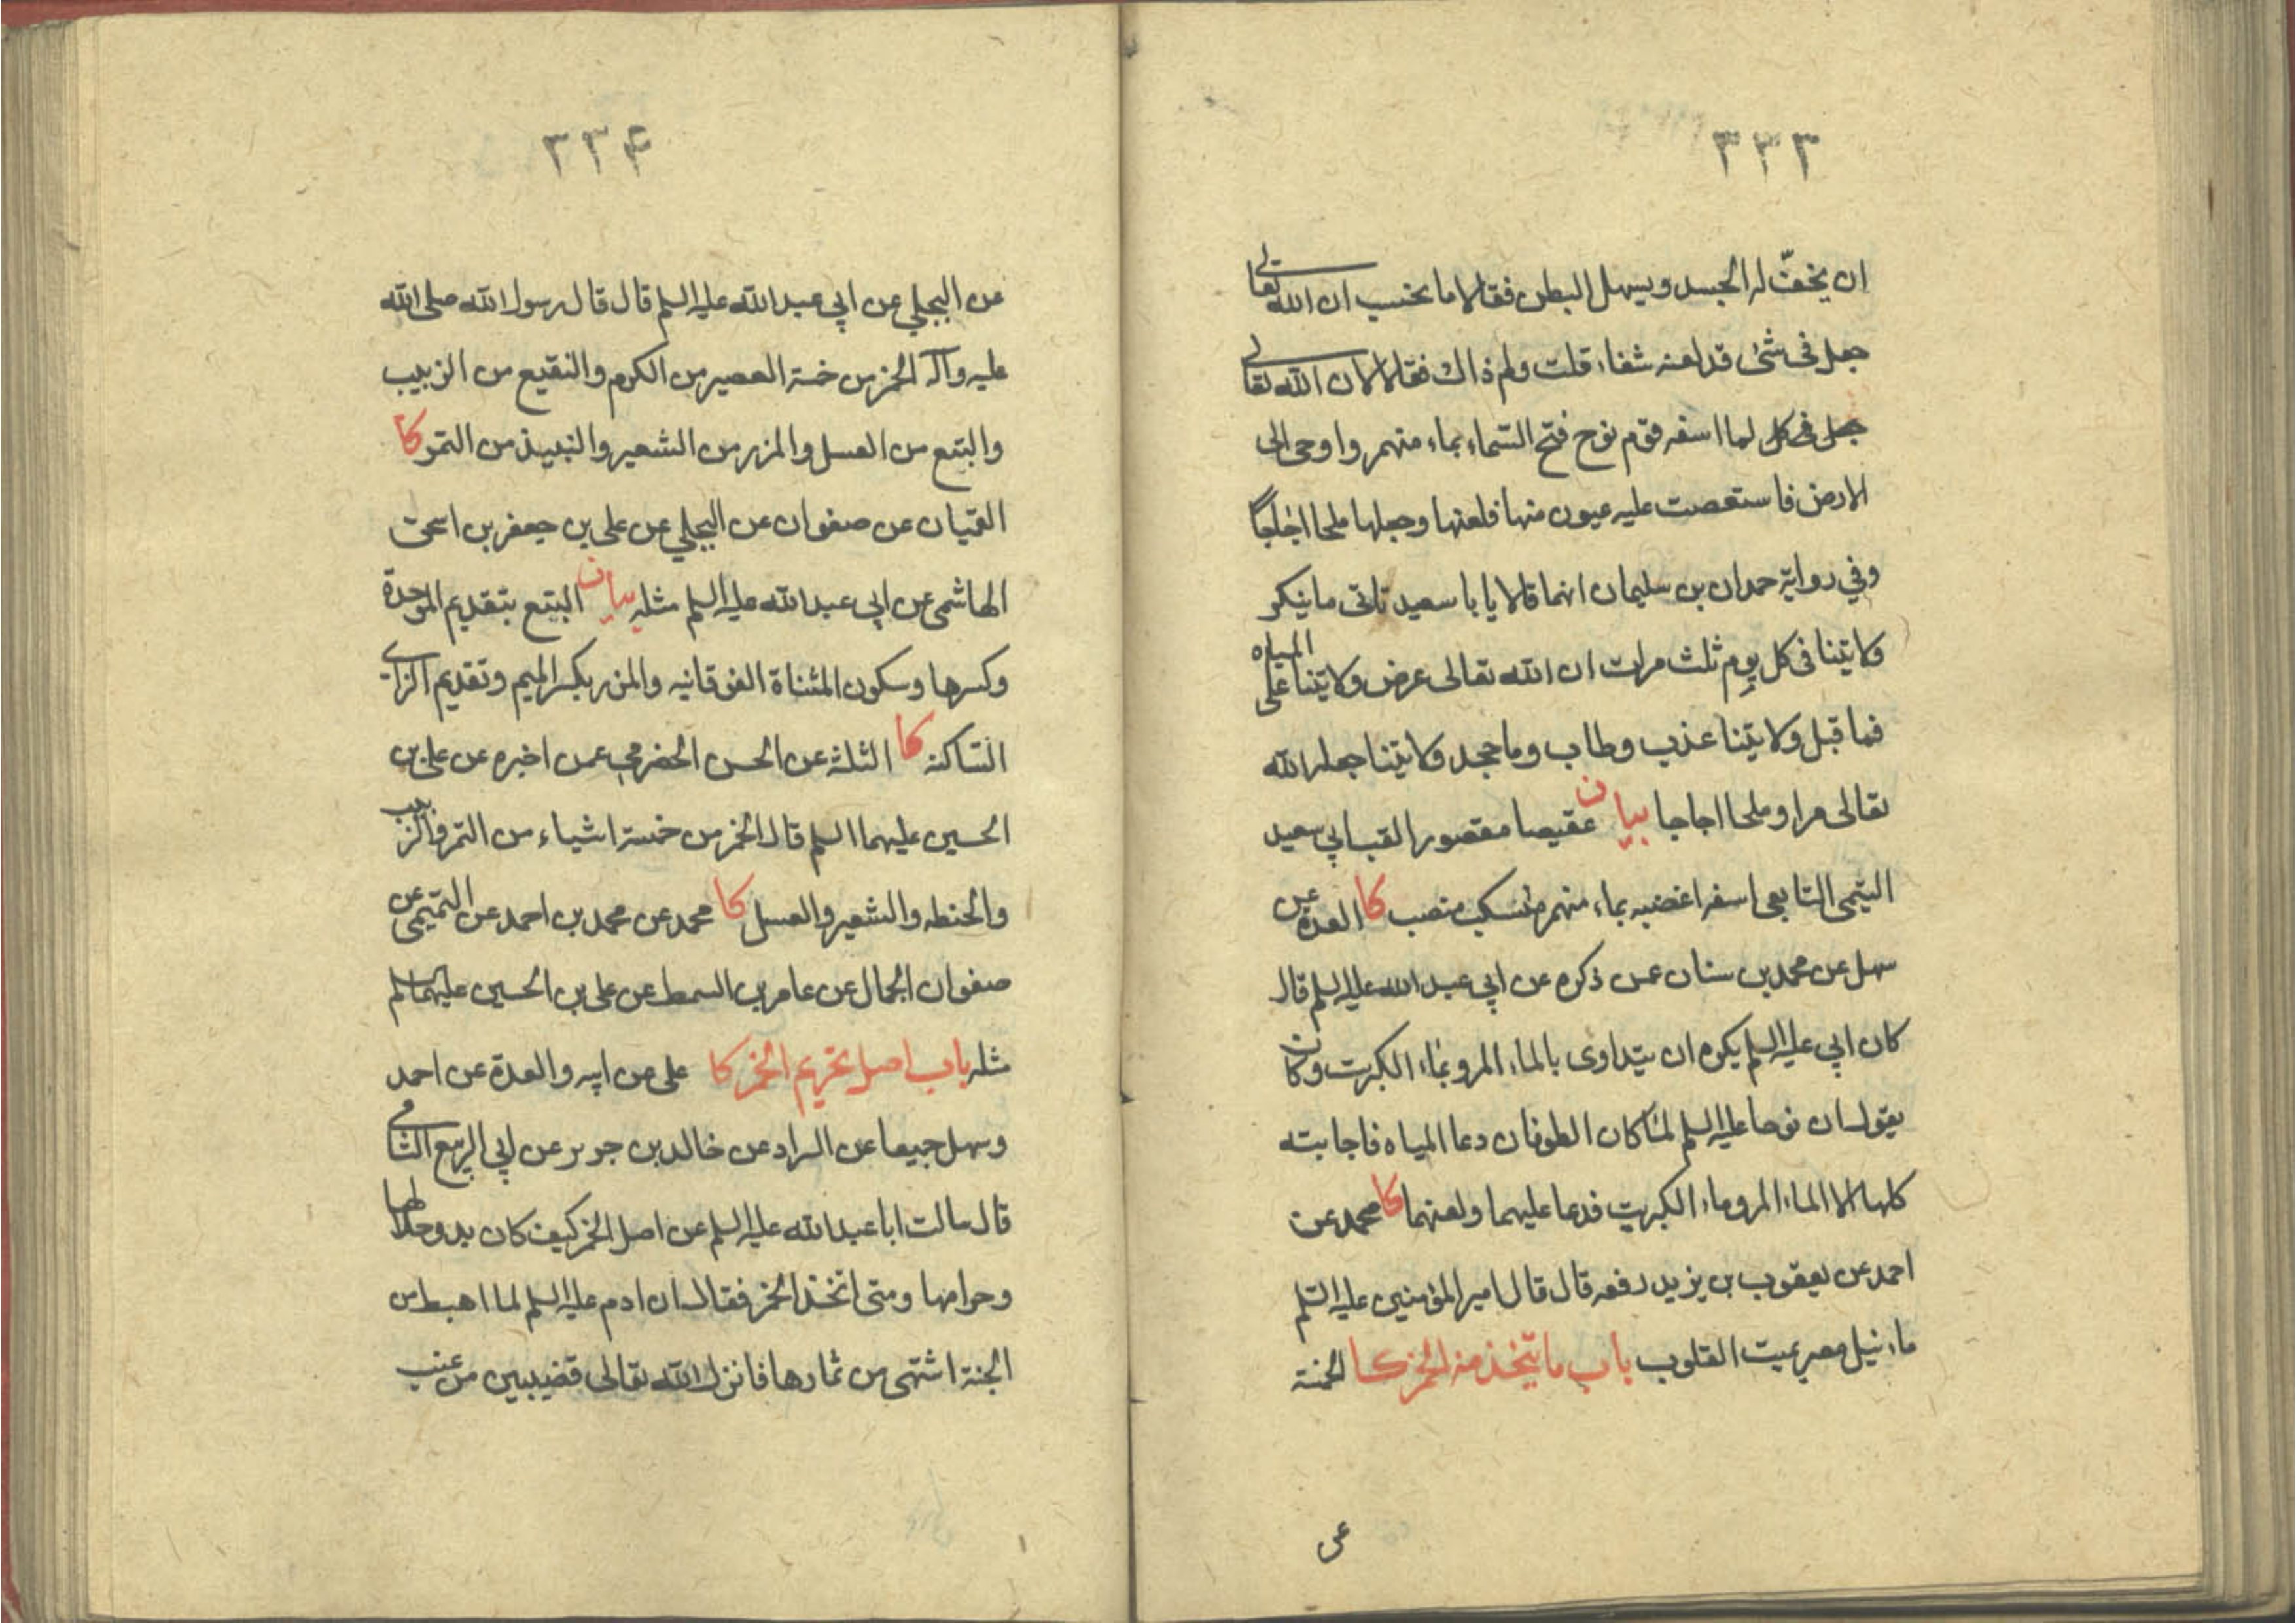 ٣٣٣
ان يخفّ له الجسد ويسهل البطن فقالا ما نحسب ان الله تعالى
جعل فى شئ قد لعنه شفاء قلت ولم ذاك فقالا لان الله تعالى
جعل فى كل لما اسفه قوم نوح فتح السماء بماء منهمر واوحى الى
الارض فاستعصت عليه عيون منها فلعنها وجعلها ملحا اجاجا
وفي رواية حمدان بن سليمان انهما قالا يا با سعيد تاتى ما ينكر
ولايتنا فى كل يوم ثلث مرات ان الله تعالى عرض ولايتنا على المياه
فما قبل ولايتنا عذب وطاب وما جحد ولايتنا جعله الله
تعالى مرا وملحا اجاجا بيان عقيصا مقصورا لقب ابي سعيد
التيمى التابعى اسفه اغضبه بماء منهمر منسكب منصب كا العدة عن
سهل عن محمد بن سنان عمن ذكره عن ابي عبد الله عليه السلم قال
كان ابي عليه السلم يكره ان يتداوى بالماء المر وبماء الكبريت وكان
يقول ان نوحا عليه السلم لما كان الطوفان دعا المياه فاجابته
كلها الا الماء المر وماء الكبريت فدعا عليهما ولعنهما كا محمد عن
احمد عن يعقوب بن يزيد رفعه قال قال امير المؤمنين عليه السلم
ماء نيل مصر يميت القلوب باب ما يتخذ منه الخمر كا الخمسة
عن
٣٣۴
عن البجلي عن ابي عبد الله عليه السلم قال قال رسول الله صلى الله
عليه وآله الخمر من خمسة العصير من الكرم والنقيع من الزبيب
والبتع من العسل والمزر من الشعير والنبيذ من التمر كا
القميان عن صفوان عن البجلي عن على بن جعفر بن اسحق
الهاشمى عن ابي عبد الله عليه السلم مثله بيان البتع بتقديم الموحدة
وكسرها وسكون المثناة الفوقانيه والمزر بكسر الميم وتقديم الزاى
الساكنة كا الثلثة عن الحسن الحضرمي عمن اخبره عن على بن
الحسين عليهما السلم قال الخمر من خمسة اشياء من التمر والزبيب
والحنطه والشعير والعسل كا محمد عن محمد بن احمد عن التميمى عن
صفوان الجمال عن عامر بن السمط عن على بن الحسين عليهما السلم
مثله باب اصل تحريم الخمر كا على عن ابيه والعدة عن احمد
وسهل جميعا عن السراد عن خالد بن جرير عن ابي الربيع الشامى
قال سالت ابا عبد الله عليه السلم عن اصل الخمر كيف كان بدو حلالها
وحرامها ومتى اتخذ الخمر فقال ان ادم عليه السلم لما اهبط من
الجنة اشتهى من ثمارها فانزل الله تعالى قضيبين من عنب